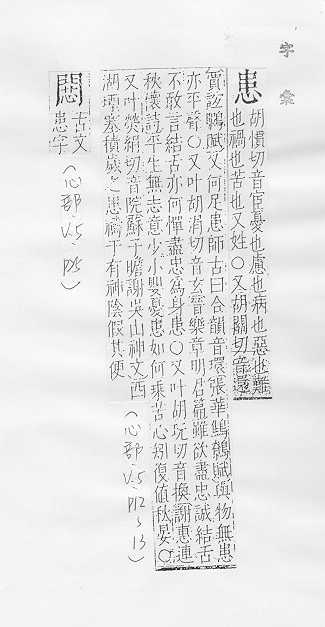 字彙
患 胡慣切音宦憂也慮也病也惡也難
也禍也苦也又姓〇又胡關切音還
賈誼鵩賦又何足患師古曰合韻音環張華鷦鷯賦與物無患
亦平聲〇又叶胡涓切音玄音樂章明君篇雖欲盡忠誠結舌
不敢言結舌亦何憚盡忠為身患〇又叶胡玩切音換謝惠連
秋懷詩平生無志意少小嬰憂患如何乘苦心矧復值秋晏〇
又叶熒絹切音院蘇子瞻謝吳山神文西
湖堙塞積歲之患禱于有神陰假其便
(心部、V.5、P.12~13)
𢞐 古文
患字
(心部、V.5、P.5)